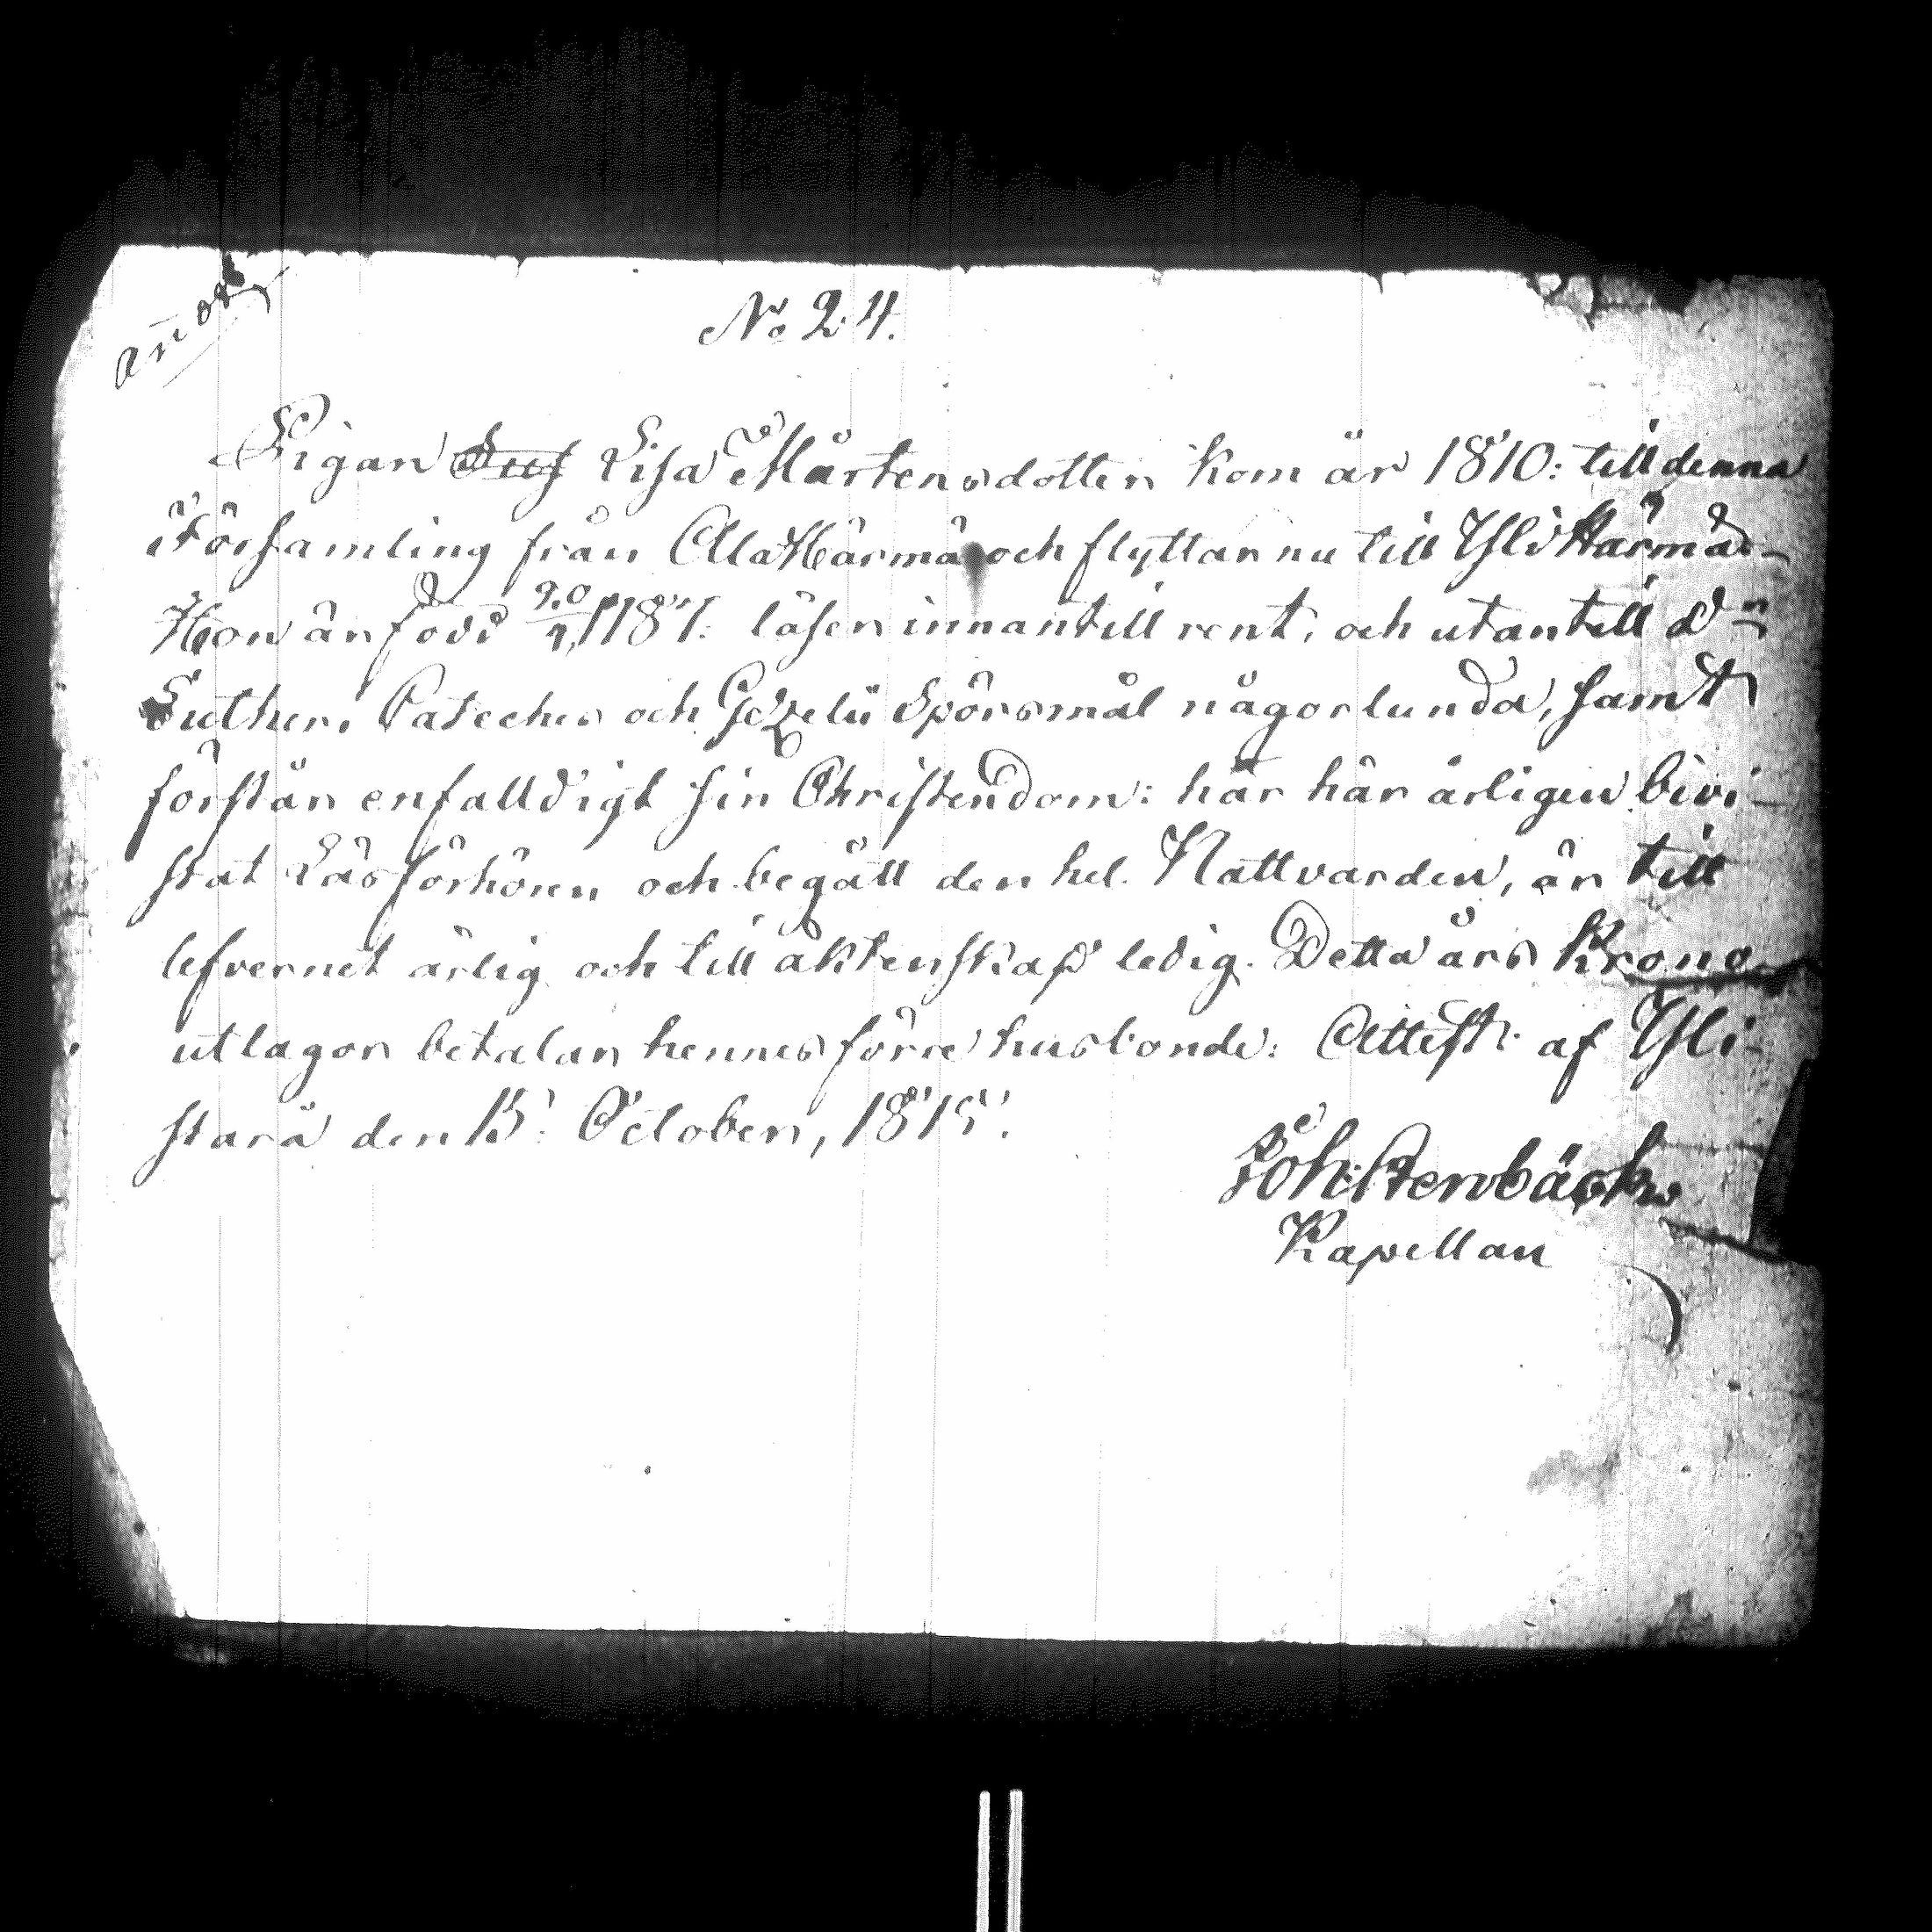 No 24.
Pigan Lisa Mårtensdotter kom år 1810: till denna
Församling från AlaHärmä och flyttar nu till YliHärmä-
Hon är född 20/4, läser innantill rent, och utantill Dn
Lutheri Cateches och Gezelii Spörsmål någorlunda, samt
förstår enfalldigt sin Christendom: har här årligen bivi-
stat Läsförhören och begått den hel. Nattvarden, är till
lefvernet ärlig och till äktenskap ledig. Detta års Krono
utlagor betalar hennes förre husbonde: Attest. af Yli-
starå den 15: October, 1815.
Joh: Stenbäck
Kapellan